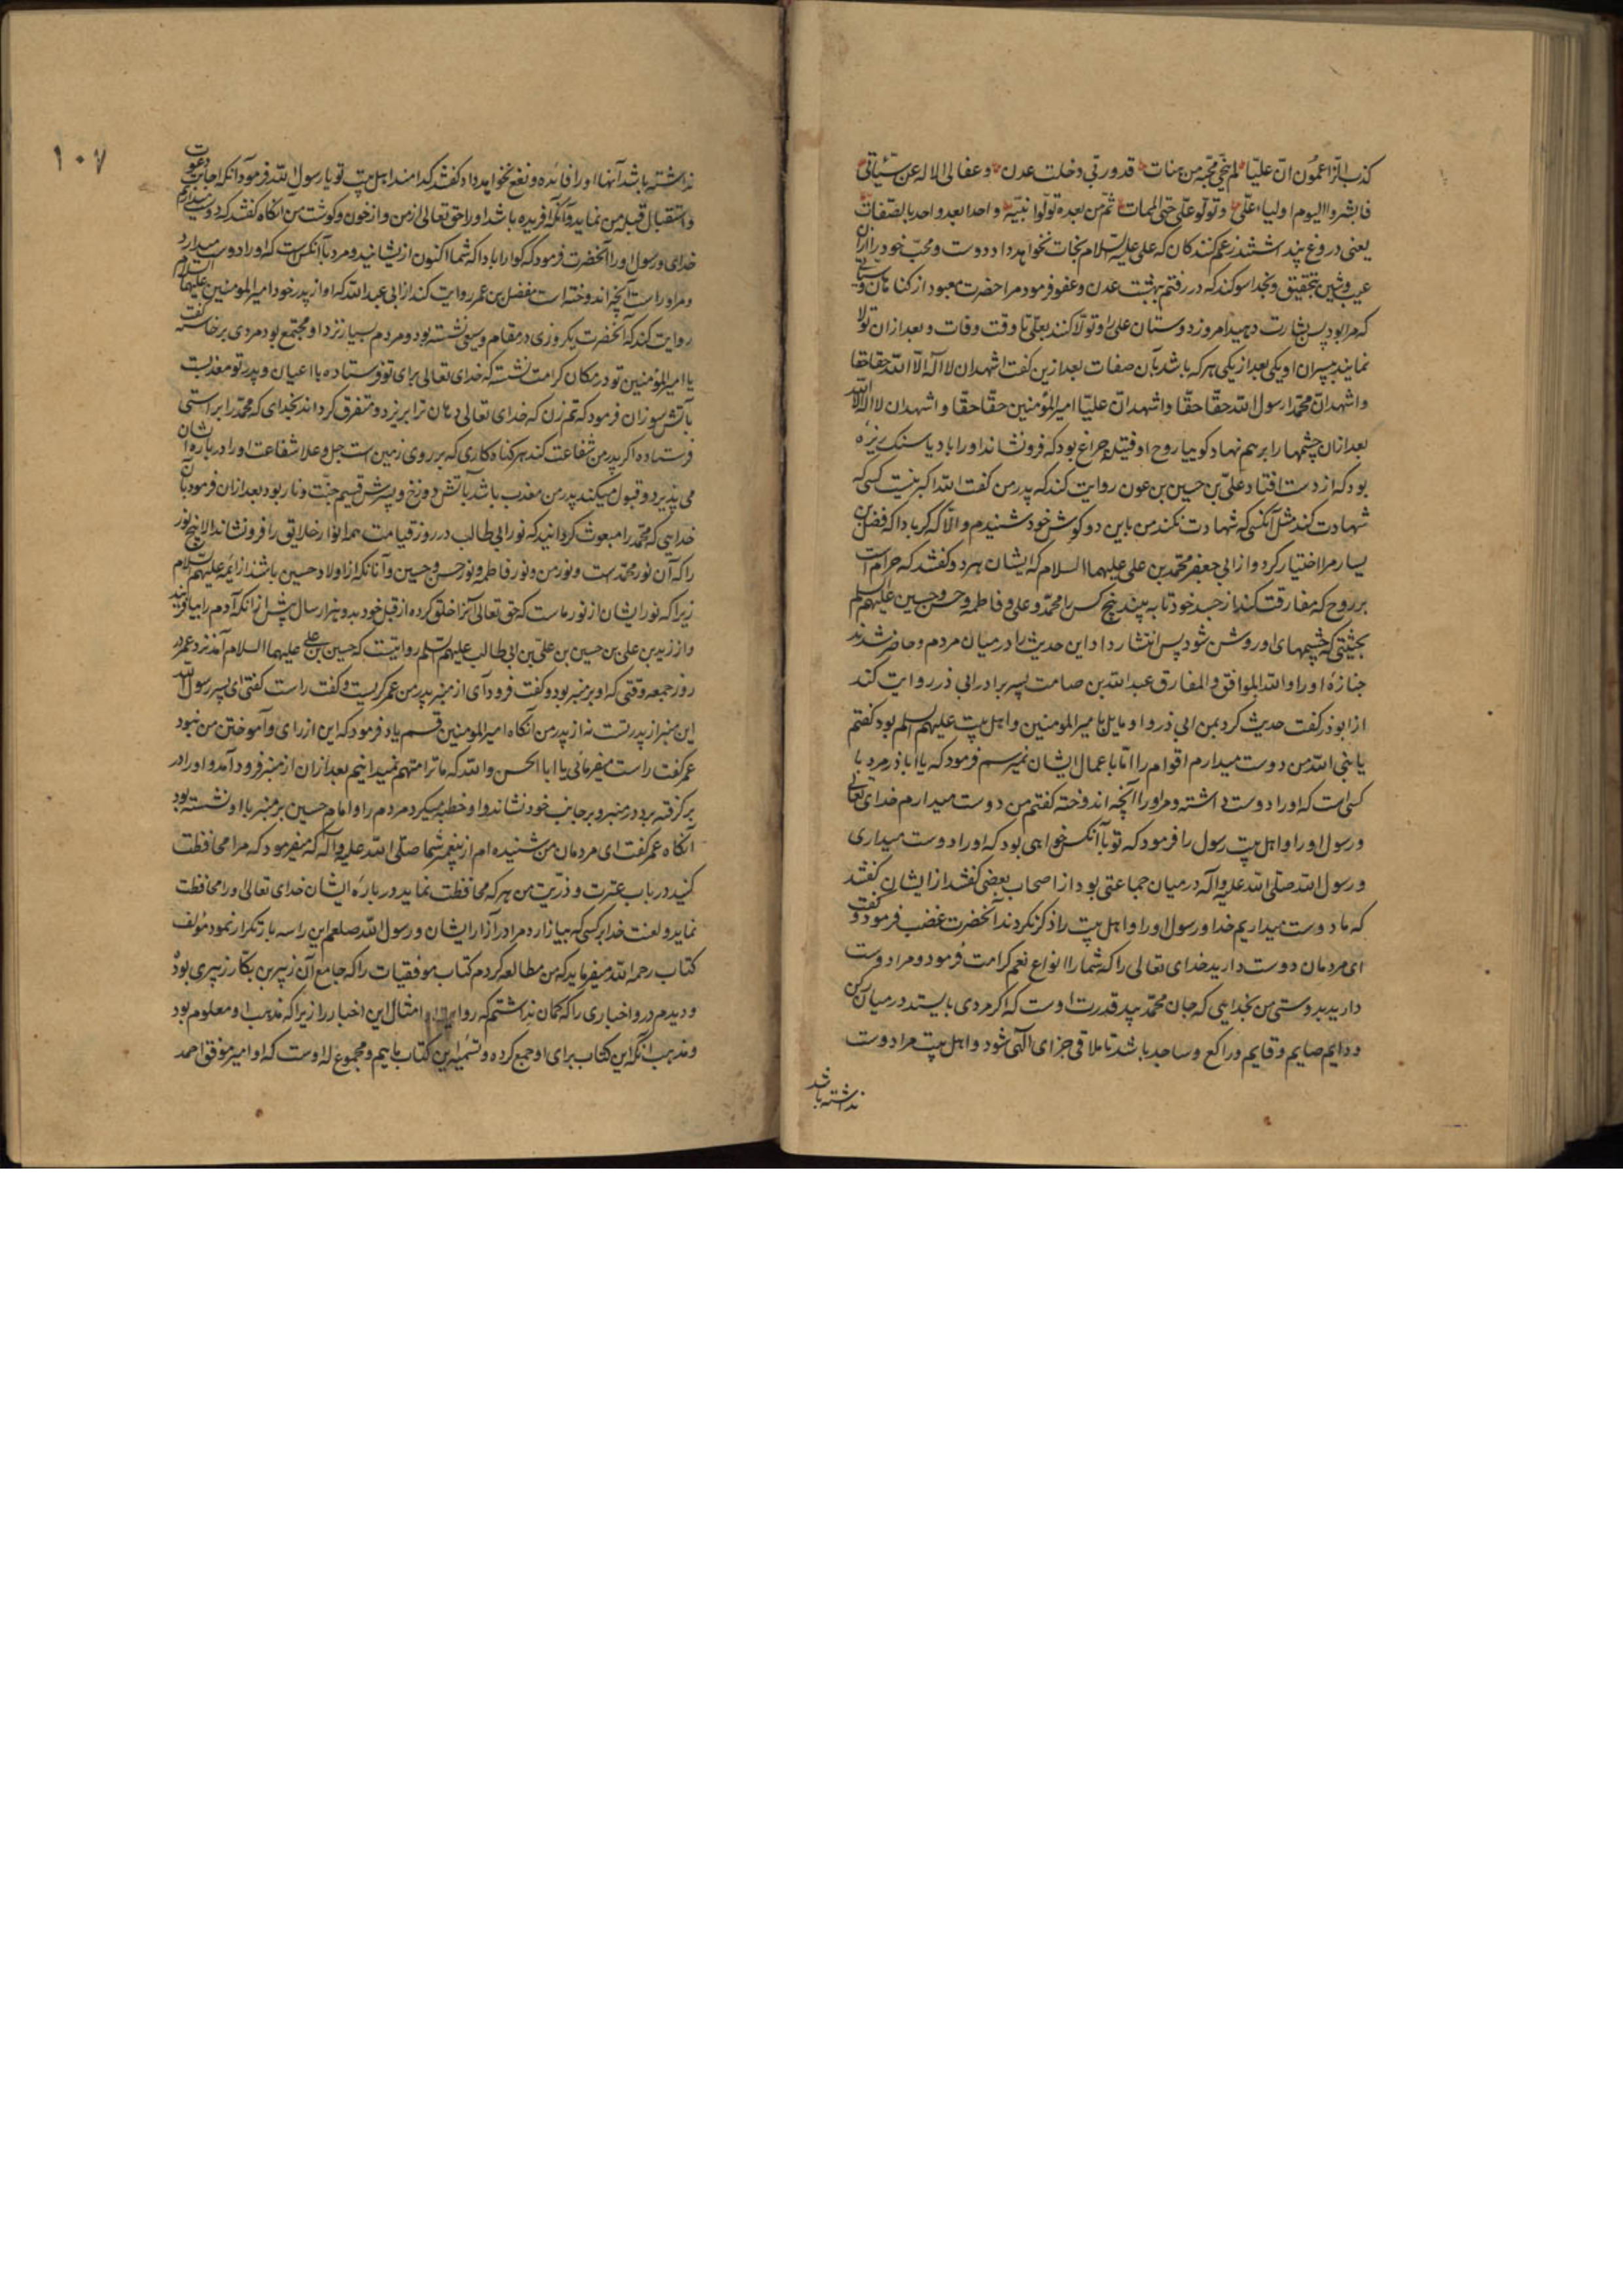 كذب الزاعمون ان عليّا لم ينجّي محبّه من هنات قد وربّي دخلت عدن و عفا لی الاله عن سیّئاتی
فابشروا الیوم اولیاء علی وتولّو علی حتی الممات ثمّ من بعده تولّوا نبیّه واحدا بعد واحد بالصفات
یعنی دروغ پنداشتند زعم کنندکان که علی علیه السلام نجات نخواهد داد دوست و محبّ خود را از ان
عیب و شین بتحقیق و بخدا سوکند که در رفتم بهشت عدن و عفو فرمود مرا حضرت معبود از کناهان و سیئاتی
که مرا بود پس بشارت دهید امروز دوستان علی را و تولّا کنند بعلی تا وقت وفات و بعد از ان تولا
نمایند بپسران او یکی بعد از یکی هر که باشد بآن صفات بعد ازین کفت اشهد ان لا اله الّا الله حقا حقا
و اشهد انّ محمّدا رسول الله حقّا حقّا و اشهد انّ علیّا امیر المؤمنین حقّا حقّا و اشهد ان لا اله الا الله
بعد ازان چشمها را بر هم نهاد کوییا روح او فتیله چراغ بود که فرو نشاند او را باد یا سنک ریزه
بود که از دست افتاد علیّ بن حسین بن عون روایت کند که پدر من کفت الله اکبر نیست کسی که
شهادت کند مثل آنکسی که شهادت نکند من باین دو کوش خود شنیدم و الّا که کر باد که فضل بن
یسار مرا اختیار کرد و از ابی جعفر محمّد بن علی علیهما السلام که ایشان هر دو کفتند که حرام است
بر روح که مفارقت کند از جسد خود تا به بیند پنج کس را محمّد و علی و فاطمه و حسن و حسین علیهم السلم
بحیثیتی که چشمهای او روشن شود پس انتشار داد این حدیث را در میان مردم و حاضر شدند
جنازه او را و الله الموافق و المفارق عبد الله بن صامت پسر برادر ابی ذر روایت کند
از ابوذر کفت حدیث کرد بمن ابی ذر و او مایل بامیر المومنین و اهل بیت علیهم السلم بود کفتم
یا نبی الله من دوست میدارم اقوام را امّا با عمال ایشان نمیرسم فرمود که یا ابا ذر مرد با
کسی است که او را دوست داشته و مر او را آنچه اندوخته کفتم من دوست میدارم خدای تعالی
و رسول او را و اهل بیت رسول را فرمود که تو با آنکس خواهی بود که او را دوست میداری
و رسول الله صلّی الله علیه و آله در میان جماعتی بود از اصحاب بعضی کفتند از ایشان کفتند
که ما دوست میداریم خدا و رسول او را و اهل بیت را ذکر نکردند آنحضرت غضب فرمود و کفت
ای مردمان دوست دارید خدای تعالی را که شما را انواع نعم کرامت فرمود و مرا دوست
دارید بدوستی من بخدایی که جان محمّد بید قدرت اوست که اکر مردی بایستد در میان رکن
و دایم صایم و قایم و راکع و ساجد باشد تا ملاقی جزای الهی شود و اهل بیت مرا دوست
نداشته باشد
۱۰۷
نداشته باشد آنها او را فائده و نفع نخواهد داد کفتند کدامند اهل بیت تو یا رسول الله فرمود آنکه اجابت دعوت
و استقبال قبله من نماید و آنکه آفریده باشد او را حق تعالی از من و از خون و کوشت من آنکاه کفتند که دوست میداریم
خدای و رسول او را آنحضرت فرمود که کوارا باد که شما اکنون از یشانید و مرد با آنکس است که او را دوست میدارد
و مر اوراست آنچه اندوخته است مفضل بن عمر روایت کند از ابی عبد الله که او از پدر خود امیر المومنین علیهما السلام
روایت کند که آنحضرت یک روزی در مقام وسیعی نشسته بود و مردم بسیار نزد او مجتمع بود مردی برخاسته کفت
یا امیر المؤمنین تو در مکان کرامت نشسته که خدای تعالی برای تو فرستاده با اعیان و پدر تو معذبست
بآتش سوزان فرمود که تم زن که خدای تعالی دهان ترا بریزد و متفرق کرداند بخدای که محمّد را براستی
فرستاده اکر پدر من شفاعت کند هر کناه کاری که بر روی زمین است جل و علا شفاعت او را در باره ایشان
می پذیرد و قبول میکند پدر من معذب باشد بآتش دوزخ و پسرش قسیم جنّت و نار بود بعد ازان فرمود بآن
خدایی که محمّد را مبعوث کردانید که نور ابی طالب در روز قیامت همه انوار خلایق را فرو نشاند الا پنج نور
را که آن نور محمّد ست و نور من و نور فاطمه و نور حسن و حسین و آنانکه از اولاد حسین باشند از ایمّه علیهم السلام
زیرا که نور ایشان از نور ماست که حق تعالی آنرا خلق کرده از قبل خود بدو هزار سال پیش از آنکه آدم را بیافریند
و از زید بن علی بن حسین بن علیّ بن ابی طالب علیهم السلم روایتست که حسین بن علی علیهما السلام آمد نزد عمر در
روز جمعه وقتی که او بر منبر بود و کفت فرود آی از منبر پدر من عمر کریست و کفت راست کفتی ای پسر رسول الله
این منبر از پدر تست نه از پدر من آنکاه امیر المومنین قسم یاد فرمود که این از رای و آموختن من نبود
عمر کفت راست میفرمائی یا ابا الحسن والله که ما ترا متهم نمیدانیم بعد ازان از منبر فرود آمد و او را در
بر کرفته برد در منبر و بر جانب خود نشاند و او خطبه میکرد مردم را و امام حسین بر منبر با او نشسته بود
آنکاه عمر کفت ای مردمان من شنیده ام از پیغمبر شما صلّی الله علیه و آله که میفرمود که مرا محافظت
کنید در باب عترت و ذرّیت من هر که محافظت نماید در باره ایشان خدای تعالی و را محافظت
نماید و لعنت خدا بر کسی که بیازارد مرا در آزار ایشان و رسول الله صلعم این را سه بار تکرار نمود مؤلف
کتاب رحمه الله میفرماید که من مطالعه کردم کتاب موفقیات را که جامع آن زبیر بن بکّار زبیری بود
و دیدم درو اخباری را که کمان نداشتم که روایت امثال این اخبار را زیرا که مذهب او معلوم بود
و مذهب آنکه این کتاب برای او جمع کرده و تسمیه این کتاب باسم و مجموع له اوست که او امیر موفق احمد